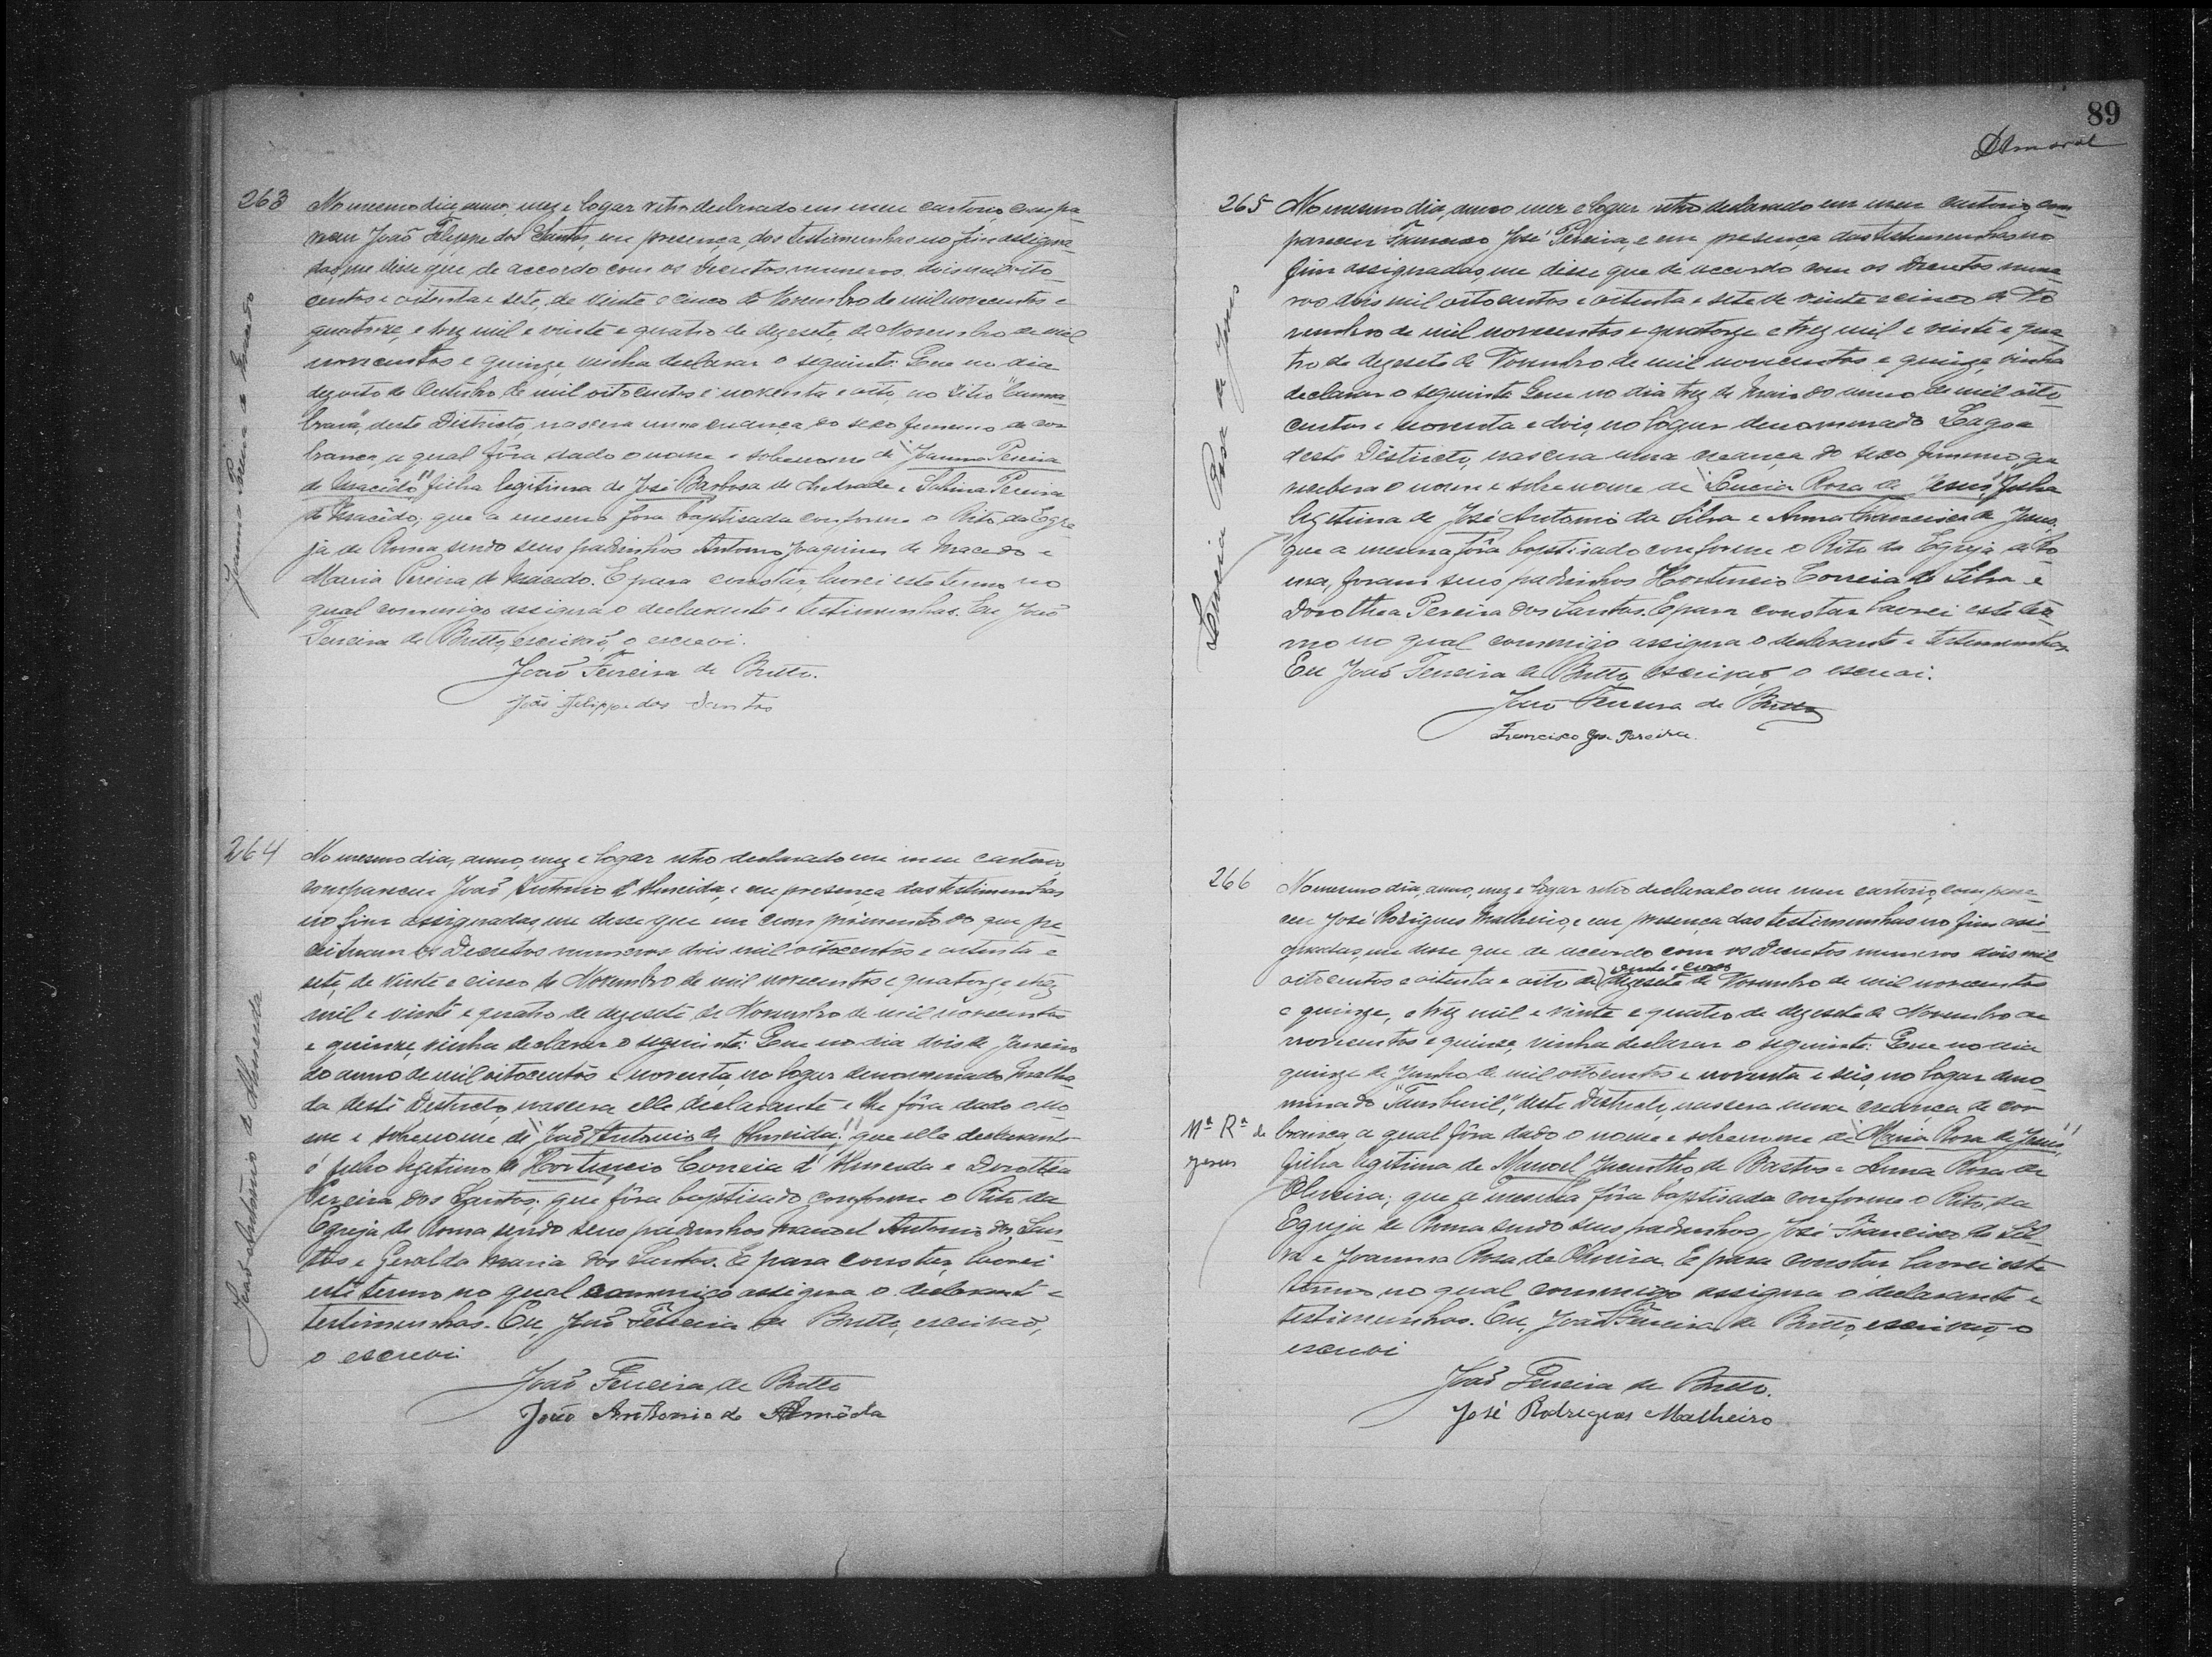 263 No mesmo dia, anno, mez e logar retro declarado em meu cartorio compa-
receu João Felippe dos Santos, em presença das testimunhas no fim assigna-
das, me disse que de accordo com os Decretos numeros dois mil oito
centos e oitenta e sete, de vinte e cinco de Novembro de mil novecentos e
quatorze, e trez mil e vinte e quatro de dezesete de Novembro de mil
novecentos e quinze, vinha declarar o seguinte: Que no dia
dezoito de Outubro de mil oitocentos e noventa e oito, no sitio
deste Districto, nascera uma creança do sexo femenino de cor
branca, a qual fôra dado o nome e sobrenome de "Joanna Pereira
de Macêdo" filha legitima de José Barbosa de Andrade e Sabina Pereira
de Macêdo; que a mesma fora baptisada conforme o Rito da Egre-
ja de Roma sendo seus padrinhos Antonio Joaquim de Macedo e
Maria Pereira de Macedo. E para constar, lavrei este termo no
qual commigo assigna o declarante e testimunhas. Eu João
Ferreira de Britto, escrivão, o escrevi.
João Ferreira de Britto.
João Felippe dos Santos
Joanna Pereira de Macedo
264 No mesmo dia, anno, mez e logar retro declarado em meu cartorio,
compareceu João Antonio d'Almeida, e em presença das testimunhas
no fim assignadas, me disse que em cumprimento do que pre-
ceituam os Decretos numeros dois mil oitocentos e oitenta e
sete, de vinte e cinco de Novembro de mil novecentos e quatorze, e trez
mil e vinte e quatro de dezesete de Novembro de mil novecentos
e quinze, vinha declarar o seguinte: Que no dia dois de Janeiro
do anno de mil oitocentos e noventa, no logar denominado Malha-
da deste Districto, nascera elle declarante e lhe fôra dado o no-
me e sobrenome de "João Antonio de Almeida;" que elle declarante
é filho legitimo de Hortencio Correia d'Almeida e Dorothea
Pereira dos Santos; que fôra baptisado conforme o Rito da
Egreja de Roma sendo seus padrinhos Manoel Antonio dos San-
tos e Geralda Maria dos Santos. E para constar, lavrei
este termo no qual commigo assigna o declarante e
testimunhas. Eu, João Ferreira de Britto, escrivão,
o escrevi.
João Ferreira de Britto
João Antonio de Almêda
João Antonio de Almeida
89
DAmaral
265 No mesmo dia, anno mez e logar retro declarado em meu cartorio com-
pareceu Francisco José Pereira, e em presença das testemunhas no
fim assignadas, me disse que de accordo com os Decretos nume-
ros dois mil oitocentos e oitenta e sete de vinte e cinco de No-
vembro de mil novecentos e quatorze e trez mil e vinte e qua-
tro de dezesete de Novembro de mil novecentos e quinze, vinha
declarar o seguinte: Que no dia trez de Maio do anno de mil oito-
centos e noventa e dois, no logar denominado Lagoa
deste Districto, nascera uma creança do sexo femenino, que
recebera o nome e sobrenome de "Lucia Rosa de Jesus", filha
legitima de José Antonio da Silva e Anna Francisca de Jesus,
que a mesma fôra baptisada conforme o Rito da Egreja de Ro-
ma, foram seus padrinhos Hortencio Correia da Silva e
Dorothea Pereira dos Santos. E para constar lavrei este ter-
mo no qual commigo assigna o declarante e testemunhas.
Eu João Ferreira de Britto, escrivão o escrevi.
João Ferreira de Britto
Francisco José Pereira.
Lucia Rosa de Jesus
266 No mesmo dia, anno, mez e logar retro declarado em meu cartorio, compare-
ceu José Rodrigues Malheiro, e em presença das testimunhas no fim assi-
gnadas, me disse que de accordo com os Decretos numeros dois mil
vinte e cinco
oitocentos e oitenta e oito de dezesete de Novembro de mil novecentos
e quinze, e trez mil e vinte e quatro de dezesete de Novembro de
novecentos e quinze, vinha declarar o seguinte: Que no dia
quinze de Junho de mil oitocentos e noventa e seis, no logar deno-
minado "Tamburil," deste Districto, nascera uma creança de cor
branca, a qual fôra dado o nome e sobrenome de "Maria Rosa de Jesus,"
filha legitima de Manoel Jacintho de Bastos e Anna Rosa de
Oliveira; que a mesma fôra baptisada conforme o Rito da
Egreja de Roma sendo seus padrinhos, José Francisco da Sil-
va e Joanna Rosa de Oliveira. E para constar, lavrei este
termo no qual commigo assigna o declarante e
testimunhas. Eu, João Ferreira de Britto, escrivão, o
escrevi
João Ferreira de Britto.
José Rodrigues Malheiro
Mª Rª de
Jesus